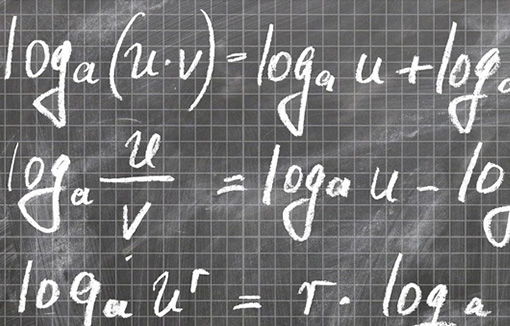 logₐ(u·v) = logₐ u + logₐ
logₐ u/v = logₐ u - lo
logₐ uʳ = r · logₐ